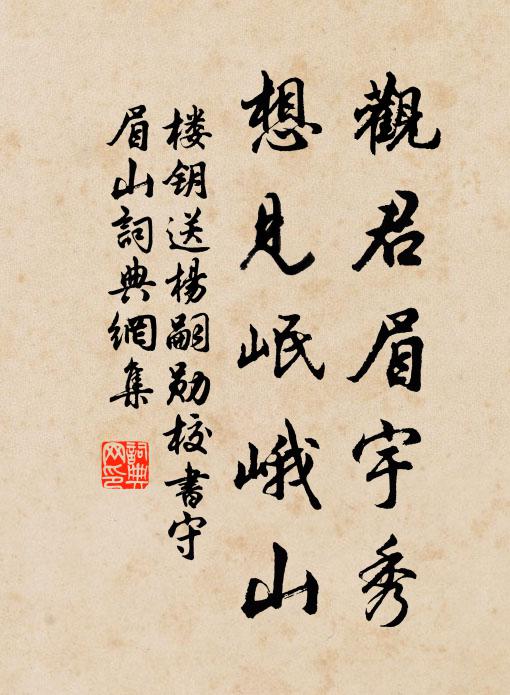 觀君眉宇秀
想見岷峨山
楼钥送楊嗣勋校書守
眉山詞典網集
詞典
网印